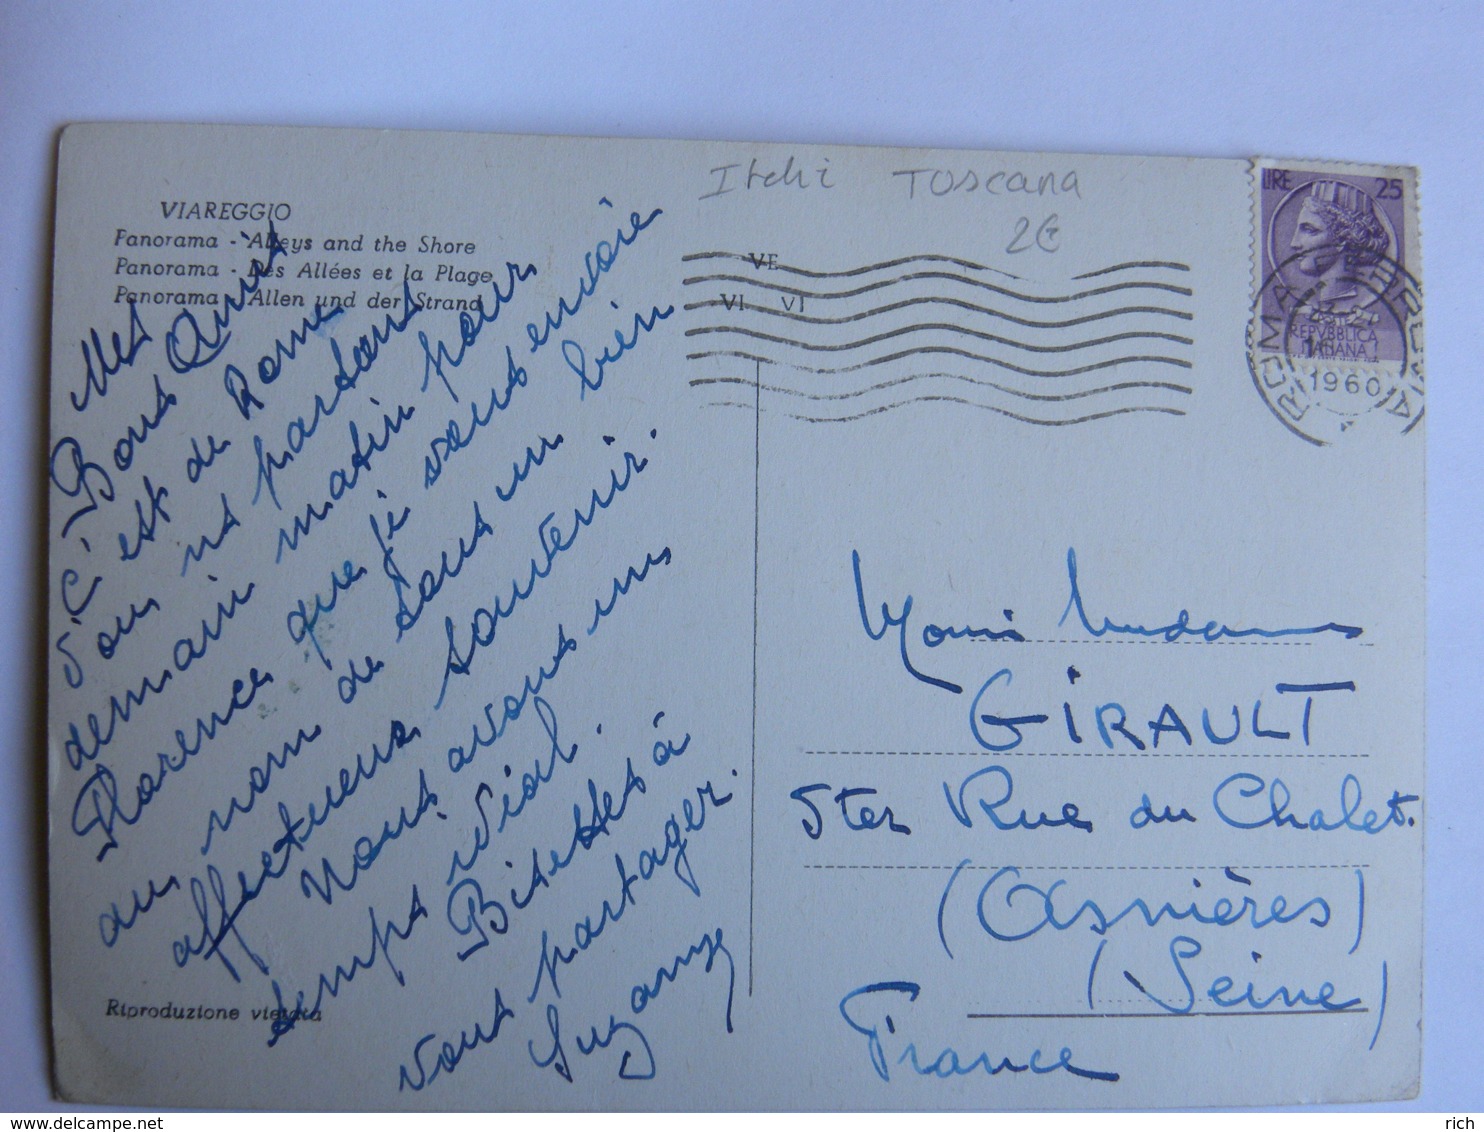 VIAREGGIO
Panorama - Alleys and the Shore
Panorama - Des Allées et la Plage
Panorama - Allen und der Strand
Itchi TOSCANA
2€
LIRE 25
REPVBBLICA
ITALIANA
ROMA FERROVIA
1960
VE
VI VI
Mes
Bons Amis
C'est de Rome
d'où ns partons
demain matin pour
Florence que je vous envoie
au nom de tous un bien
affectueux souvenir.
Nous avons un
temps idéal.
Bises à
vous partager.
Suzanne
Riproduzione vietata
Madame
GIRAULT
5ter Rue du Chalet.
(Asnières)
(Seine)
France
rich